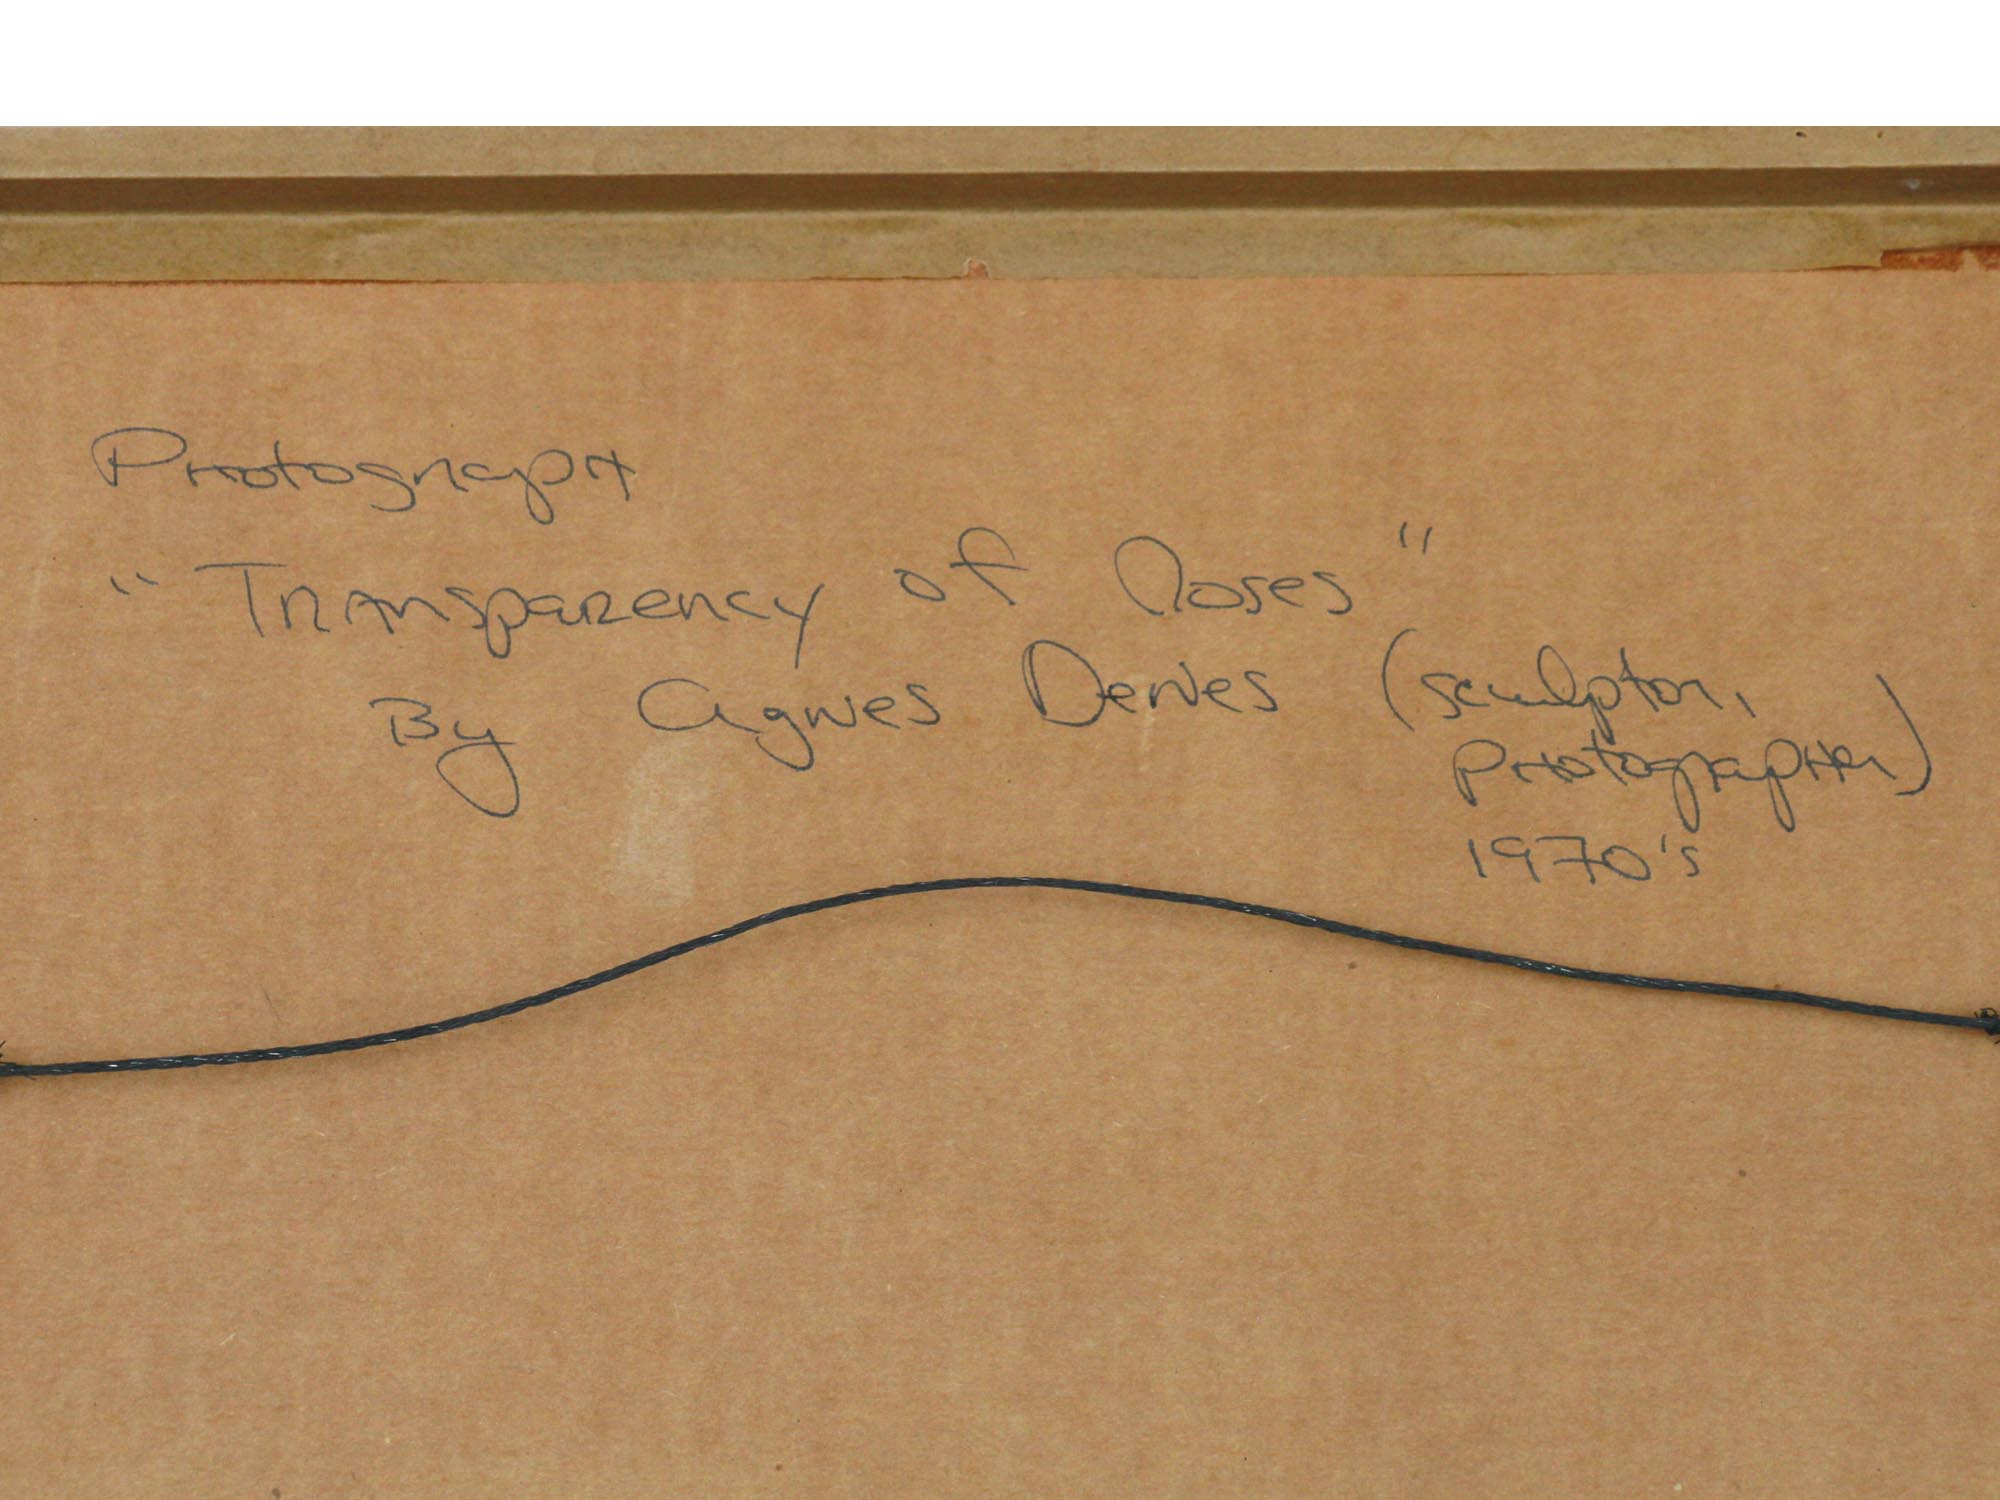 Photograph
"Transparency of Roses"
By Agnes Denes (sculptor,
photographer)
1970's